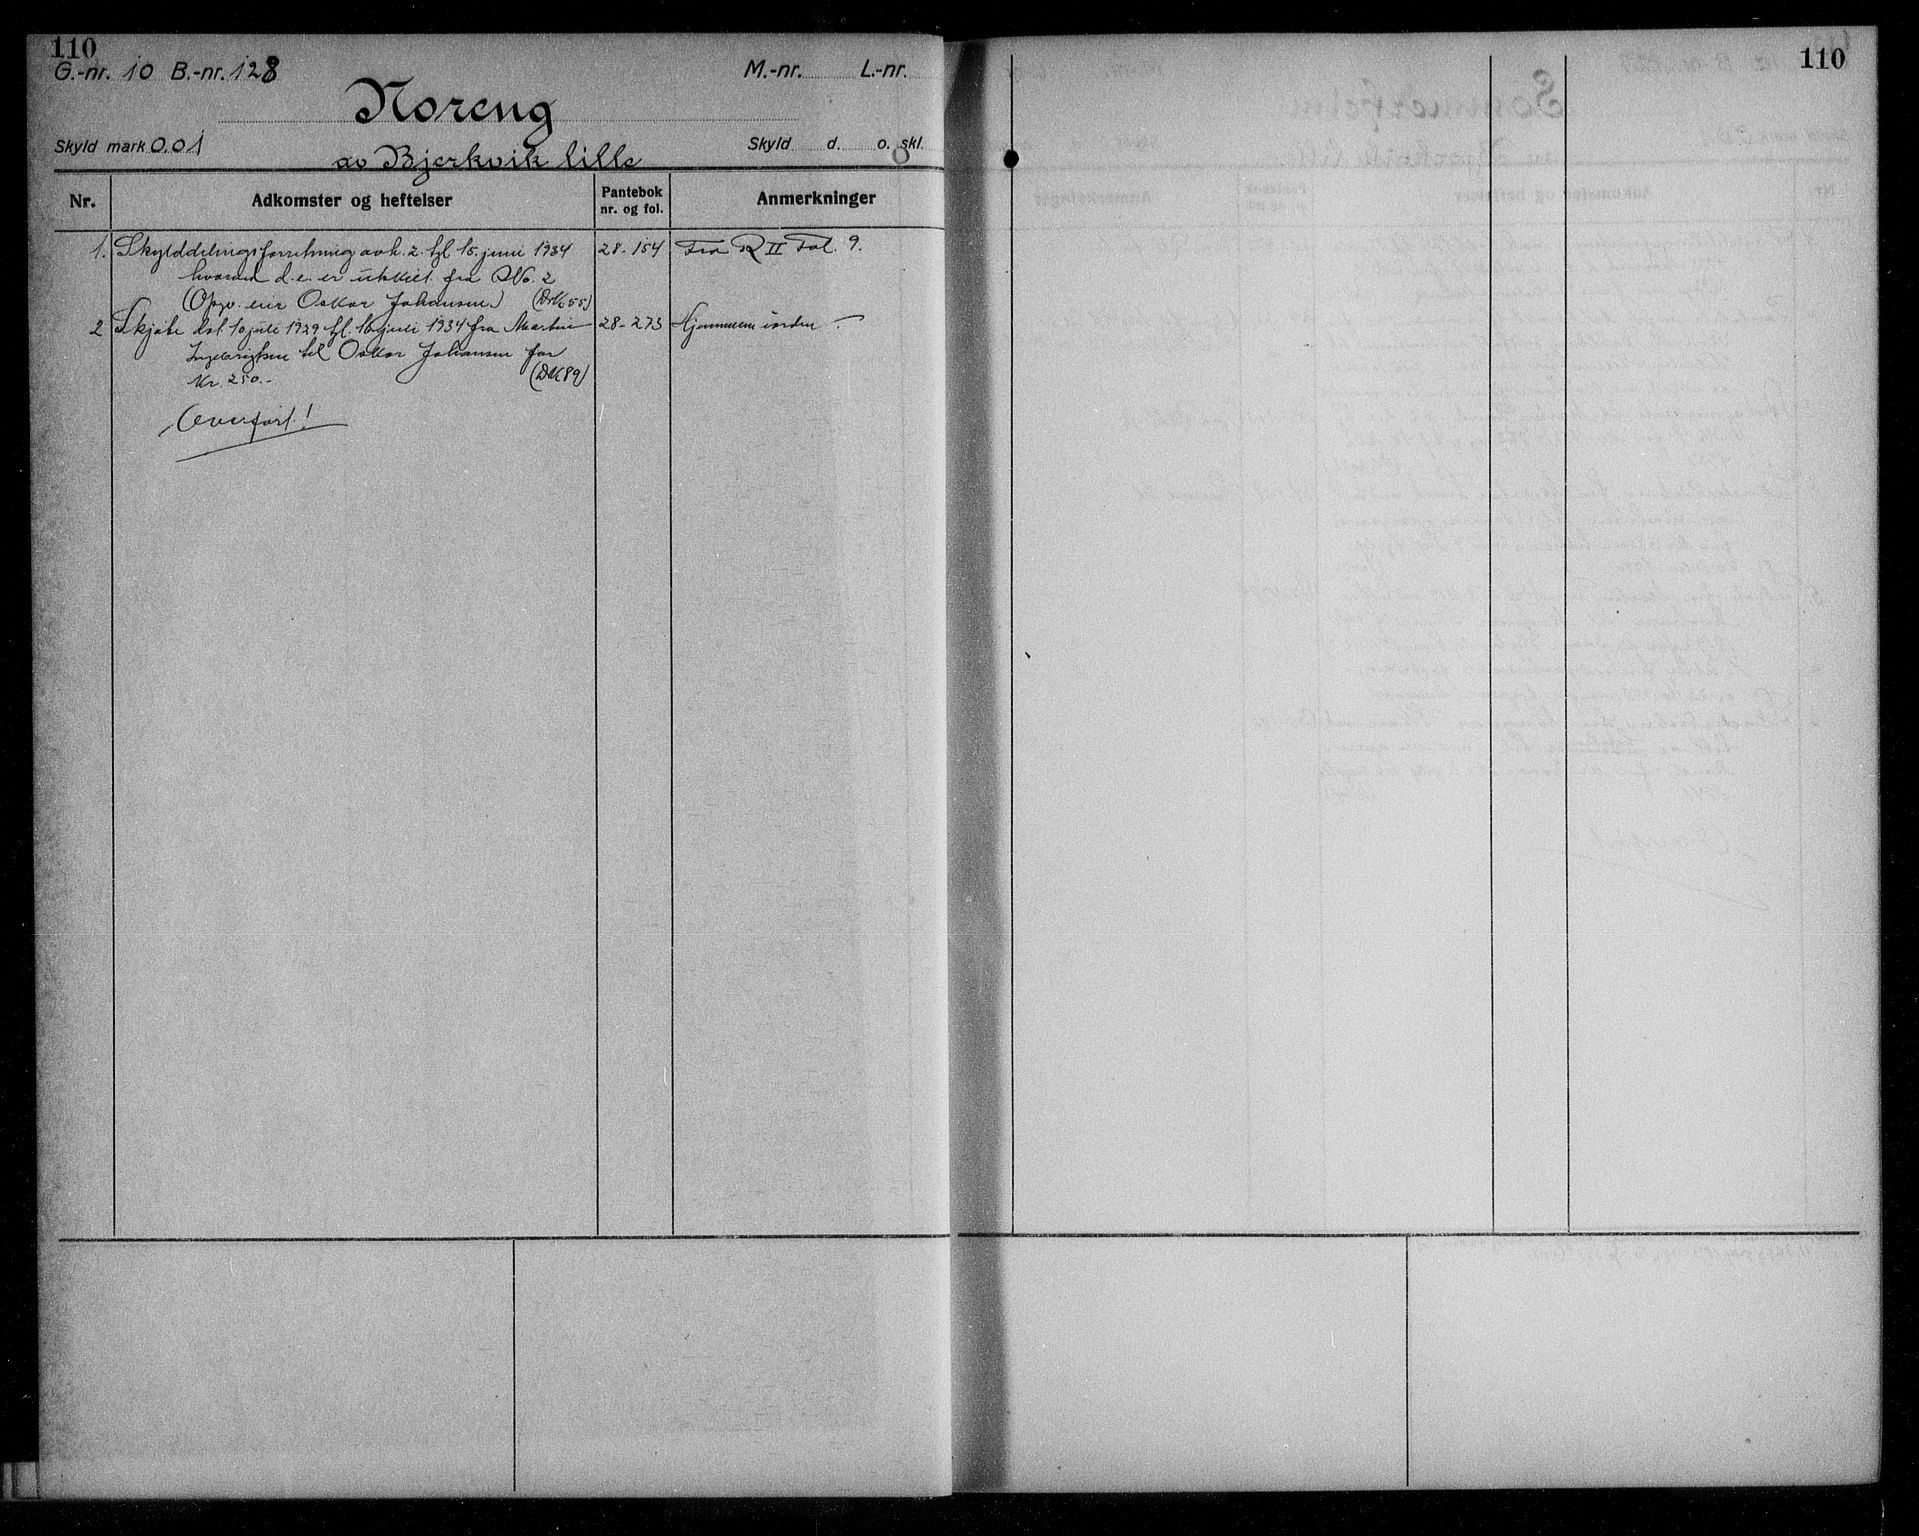 110
G.-nr. 10 B.-nr. 128 M.-nr. L.-nr.
Noreng
Skyld mark 0.01 av Bjerkvik lille Skyld d. o. skl.
Nr. Adkomster og heftelser Pantebok nr. og fol. Anmerkninger
1. Skylddelingsforretning avh. 2. tgl 15. juni 1934 28-154 Fra R II Fol. 9.
hvorved d.e. er utskilt fra No. 2
(Opgv. eier Oskar Johansen) (Dok 55)
2 Skjøte dat. 10 juli 1929 tgl. 16 juli 1934 fra Martin 28-273
Ingebrigtsen til Oskar Johansen for
Kr. 250.- (DK 89)
Overført!
110